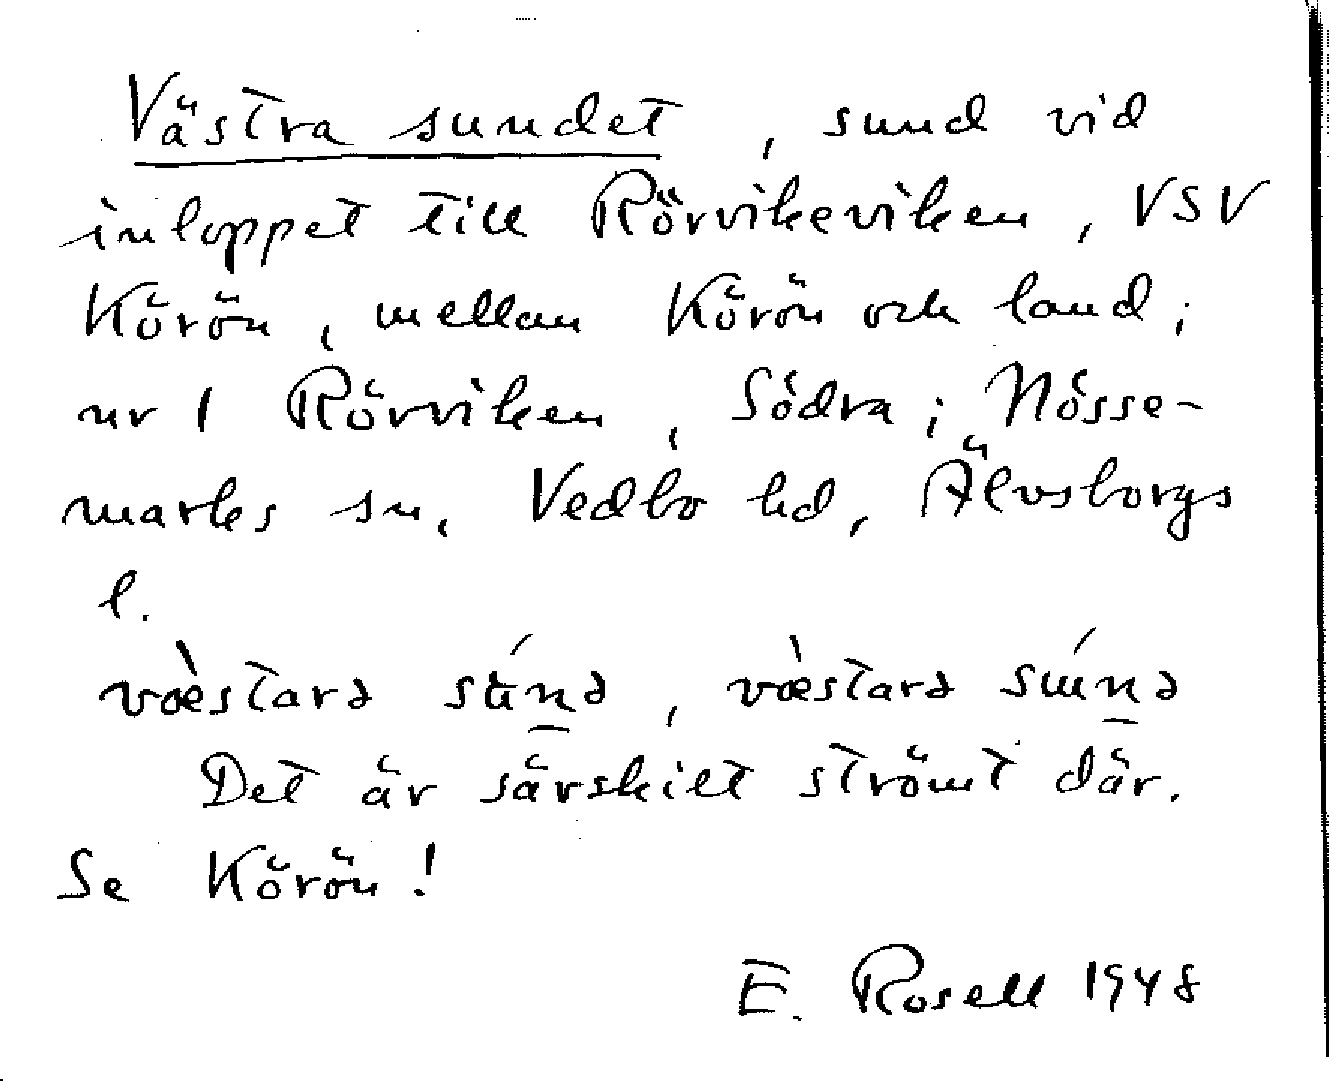 Västra sundet, sund vid
inloppet till Rörvikeviken, VSV
Körön, mellan Körön och land;
nr 1 Rörviken, Södra; Nösse-
marks sn, Vedbo hd, Älvsborgs
l.
væ̀starə sú̵nə, væ̀starə súnə
Det är särskilt strömt där.
Se Körön!
E. Rosell 1948